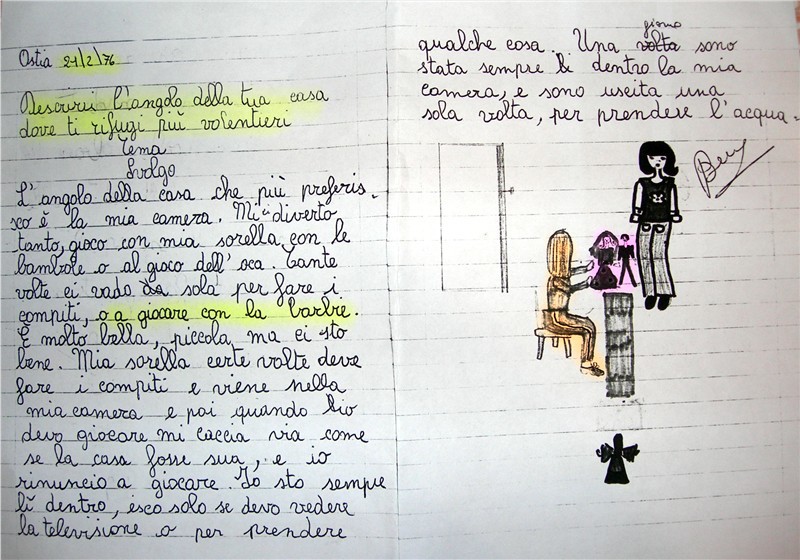 Ostia 21/2/76
Descrivi l'angolo della tua casa
dove ti rifugi più volentieri
Tema
Svolgo
L'angolo della casa che più preferis-
sco è la mia camera. Mi ci diverto
tanto, gioco con mia sorella con le
bambole o al gioco dell'oca. Tante
volte ci vado da sola per fare i
compiti, o a giocare con la barbie.
È molto bella, piccola ma ci sto
bene. Mia sorella certe volte deve
fare i compiti e viene nella
mia camera e poi quando io
devo giocare mi caccia via come
se la casa fosse sua, e io
rinuncio a giocare. Io sto sempre
lì dentro, esco solo se devo vedere
la televisione o per prendere
qualche cosa. Una volta giorno sono
stata sempre lì dentro la mia
camera, e sono uscita una
sola volta, per prendere l'acqua.